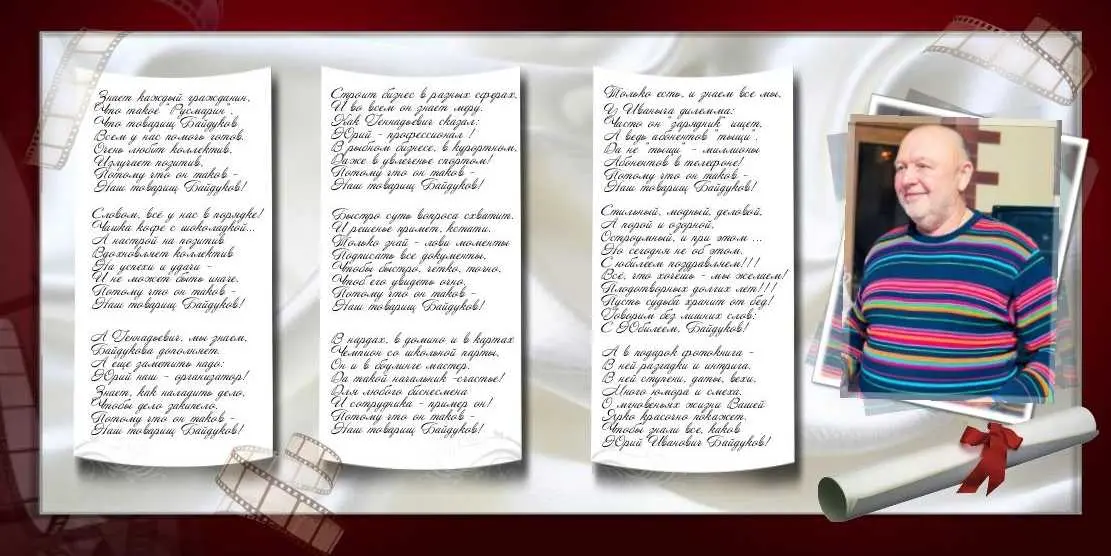 Знает каждый гражданин,
Что такое "Русмарин".
Что товарищ Байдуков
Всем у нас помочь готов.
Очень любит коллектив,
Излучает позитив,
Потому что он таков -
Наш товарищ Байдуков!
Словом, всё у нас в порядке!
Чашка кофе с шоколадкой...
А настрой на позитив
Вдохновляет коллектив
На успехи и удачи -
И не может быть иначе,
Потому что он таков -
Наш товарищ Байдуков!
А Геннадьевич, мы знаем,
Байдукова дополняет.
А еще заметить надо:
Юрий наш - организатор!
Знает, как наладить дело,
Чтобы дело закипело.
Потому что он таков -
Наш товарищ Байдуков!
Строит бизнес в разных сферах,
И во всем он знает меру.
Как Геннадьевич сказал:
Юрий - профессионал !
В рыбном бизнесе, в курортном,
Даже в увлеченье спортом!
Потому что он таков -
Наш товарищ Байдуков!
Быстро суть вопроса схватит,
И решенье примет, кстати.
Только знай - лови моменты
Подписать все документы.
Чтобы быстро, четко, точно,
Чтоб его увидеть очно,
Потому что он таков -
Наш товарищ Байдуков!
В нардах, в домино и в картах
Чемпион со школьной парты,
Он и в боулинге мастер.
Да такой начальник -счастье!
Для любого бизнесмена
И сотрудника - пример он!
Потому что он таков -
Наш товарищ Байдуков!
Только есть, и знаем все мы,
У Иваныча дилемма:
Часто он "зарядник" ищет,
А ведь абонентов "тыщи".
Да не "тыщи" - миллионы
Абонентов в телефоне!
Потому что он таков -
Наш товарищ Байдуков!
Стильный, модный, деловой,
А порой и озорной,
Остроумный, и при этом ...
Но сегодня не об этом.
С юбилеем поздравляем!!!
Всё, что хочешь - мы желаем!
Плодотворных долгих лет!!!
Пусть судьба хранит от бед!
Говорим без лишних слов:
С Юбилеем, Байдуков!
А в подарок фотокнига -
В ней разгадки и интрига.
В ней ступени, даты, вехи,
Много юмора и смеха.
О мгновеньях жизни Вашей
Ярко красочно покажет,
Чтобы знали все, каков
Юрий Иванович Байдуков!